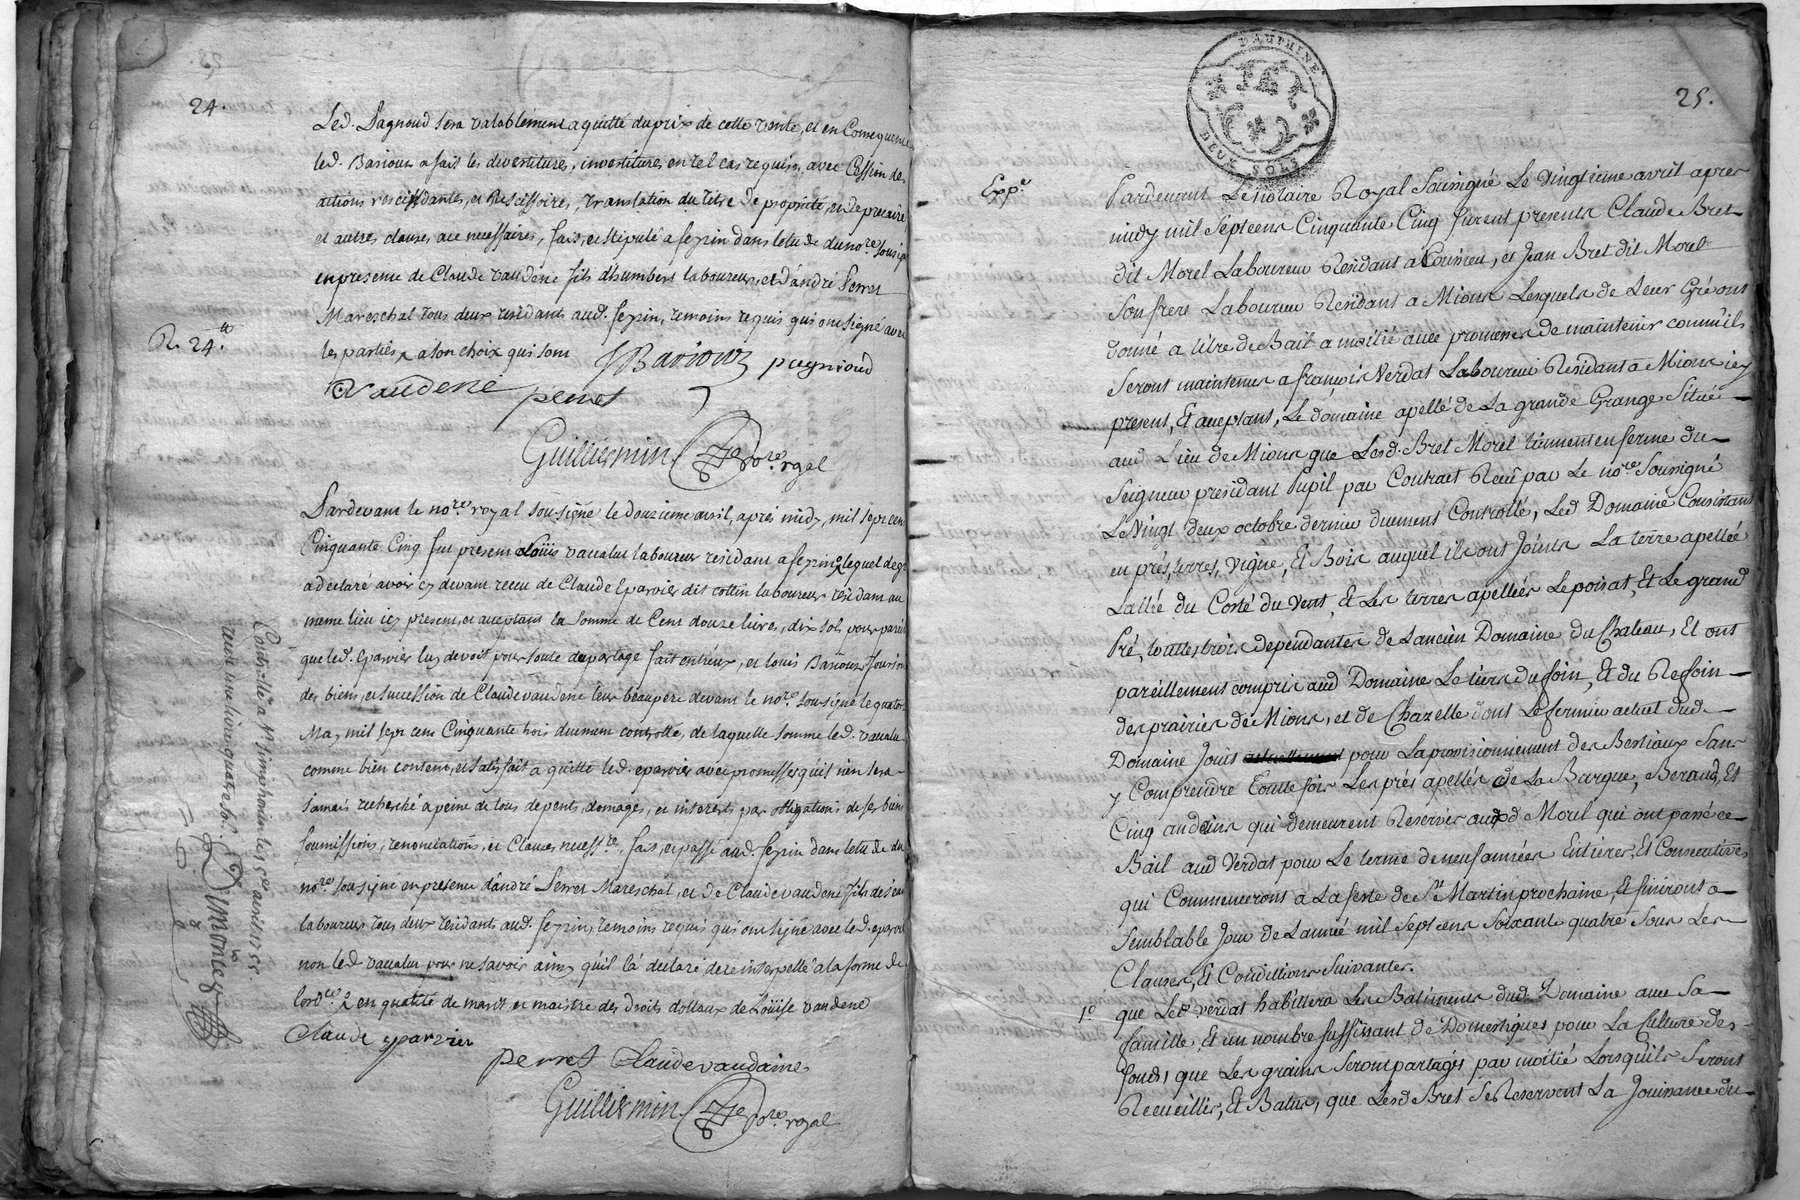 24.
Led. Pagnoud sera valablement aquitté du prix de cette vente, et en Consequence
led. Bariouz a fait les devestitures, investitures, en tel cas requises, avec Cession des
actions rescindantes, et Rescissoires, translation du titre de proprieté, et de precaire
et autres clauses a ce necessaires, fait, et stipulé a feyzin dans letude du nore. sousigné
en presence de Claude vaudene fils d'humbert laboureur, et d'andré Perret
Mareschal tous deux residants aud. feyzin, temoins requis qui ont signé avec
R. 24.te
les parties a son choix qui sont JBariouz pagnioud
Vaudene perret
Guilliermin Nore. ryal
Pardevant le nore. royal sousigné le douzieme avril, après midy, mil sept cent
Cinquante Cinq fut present Loüis vaualus laboureur residant a feyzin lequel de gré
a declaré avoir cy devant receu de Claude Eparvier dit cottin laboureur residant au
meme lieu icy present, et acceptant la somme de Cent douze livres, dix sols, pour pareil
que led. Eparvier luy devoit pour soute de partage fait entr'eux, et louis Bariouz
des biens, et succession de Claude vaudene leur beaupere devant le nore. sousigné le quatorze
May mil sept cent Cinquante trois duement controllé, de laquelle somme led. vaualus
comme bien content, et satisfait a quitté led. eparvier avec promesses qu'il n'en sera
Jamais recherché a peine de tous depents, domages, et interests par obligations de ses biens
soumissions, renonciations, et Clauses necessres, fait, et passé aud. feyzin dans letude du
nore. sousigné en presence d'andré Perret Mareschal, et de Claude vaudene fils de Jean
laboureur tous deux residants aud. feyzin, temoins requis qui ont signé avec led. eparvier
non led. vaualus pour ne savoir ainsy qu'il l'a declaré de ce interpellé a la forme de
lordce. en qualité de mary, et maistre des droits dottaux de Loüise vaudene
Claude Eparvier
perret Claude vaudaine
Guilliermin Nore. ryal
Controllé a St. Simphorien les avril 1755
receu une livre quatre sols
DAUPHINE
DEUX SOLS
25.
Expé
Pardevant Le Notaire Royal Sousigné Le Vingtieme avril apres
midy mil Sept cent Cinquante Cinq furent presents Claude Bret
dit Morel Laboureur Residant a Corineu, et Jean Bret dit Morel
Son frere Laboureur Residant a Mions Lesquels de Leur Gré ont
donné a titre de Bail a moitié avec promesses de maintenir comm'ils
Seront maintenus a françois Verdat Laboureur Residant a Mions icy
present, Et acceptant, Le domaine apellé de La grande Grange Situé
aud. Lieu de Mions que Lesd. Bret Morel tiennent en ferme du
Seigneur president Pupil par Contract Receu par Le nore. Soussigné
Le Vingt deux octobre dernier duement Controllé, Led Domaine Consistant
en prés, terres, vigne, Et Bois auquel ils ont Joints La terre apellée
Lallée du Costé du Vent, Et Les terres apellées Le poisat, Et Le grand
Pré, touttes trois dependantes de Lancien Domaine du Chateau, Et ont
pareillement compris aud Domaine Le tiers du foin, Et du Reffoin
des prairies de Mions, et de Chazelle dont Le fermier actuel dud
Domaine Jouit actuellement pour Laprovisionnement des Bestiaux Sans
y Comprendre Touttefois Les prés apellés de La Barque, Beraud, Et
Cinq andains qui demeurent Reservés auxd Morel qui ont passé ce
Bail aud Verdat pour Le terme de neuf années Entieres, Et Consecutives
qui Commenceront a La feste de St. Martin prochaine, Et finiront a
Semblable Jour de Lannée mil Sept cens Soixant quatre Sous Les
Clauses, Et Conditions Suivantes.
1º que Led verdat habittera Les Batiments dud Domaine avec Sa
famille, Et un nombre Suffissant de Domestiques pour La Culture des
fonds, que Les grains Seront partagés par moitié Lorsqu'ils Seront
Recueillis, Et Batus, que Lesd Bret Se Reservent La Jouissance du